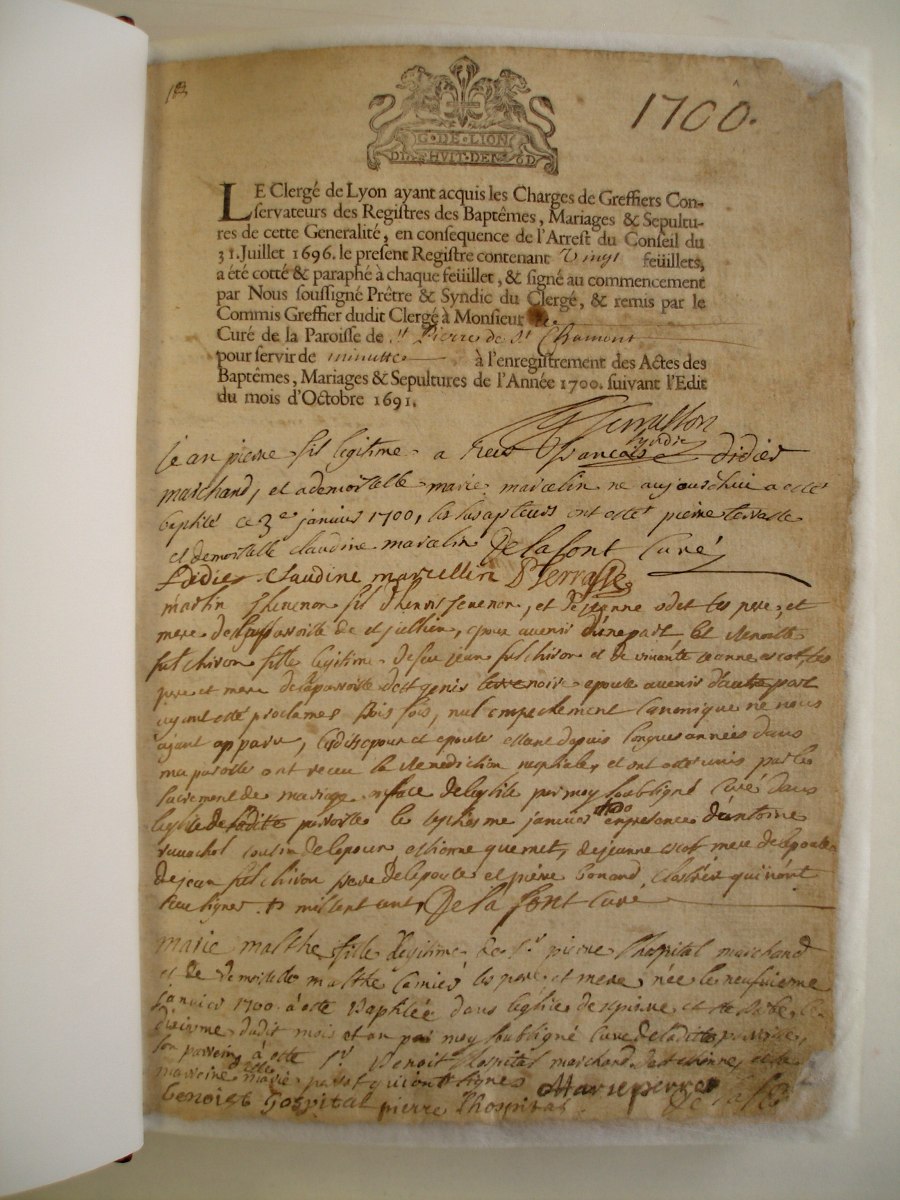 1700.
G·DE·LION
DIX·HUIT·DEN
LE Clergé de Lyon ayant acquis les Charges de Greffiers Con-
servateurs des Registres des Baptêmes, Mariages & Sepultu-
res de cette Generalité, en consequence de l'Arrest du Conseil du
31. Juillet 1696. le present Registre contenant Vingt feüillets,
a été cotté & paraphé à chaque feüillet, & signé au commencement
par Nous soussigné Prêtre & Syndic du Clergé, & remis par le
Commis Greffier dudit Clergé à Monsieur
Curé de la Paroisse de St Pierre de St Chamont
pour servir de minutte à l'enregistrement des Actes des
Baptêmes, Mariages & Sepultures de l'Année 1700. suivant l'Edit
du mois d'Octobre 1691.
Terrasson
syndic
jean pierre fils legitime a François Didier
marchand, et a demoiselle marie marcelin ne aujourd'hui a esté
baptisé ce 3e janvier 1700, ont esté pierre terrasse
et demoiselle claudine marcelin De la font Curé
Didier Claudine marcellin P Terrasse
martin fils d'henri, et de jeanne odet ses pere, et
mere de la paroisse de st jullien, epoux avenir d'une part Et
fulchiron fille legitime de feu jean fulchiron et de vivante jeanne escot ses
pere et mere de la paroisse de st genis terrenoire epouse avenir d'autre part
ayant esté proclamés trois fois, nul empechement canonique ne nous
ayant apparu, lesdits epoux et epouse estant depuis longues années dans
ma paroisse ont receu la benediction nuptiale, et ont esté unis par le
sacrement de mariage en face de l'eglise par moy soubsigné Curé dans
l'eglise de ladite paroisse le janvier 1700 en presence d'antoine
ravachol cousin de l'epoux, estienne quemet, de jeanne escot mere de l'epouse
de jean fulchiron frere de l'epouse et pierre bonand, qui n'ont
sceu signer. De la font Curé
marie malthe fille legitime de sr pierre l'hospital marchand
et de demoiselle malthe camier ses pere et mere née le neufvieme
janvier 1700 a esté Baptisée dans l'eglise de st pierre et le
dixieme dudit mois et an par moy soubsigné Curé de ladite paroisse,
son parrein a esté sr Benoit l'hospital marchand de st etienne, et la
marreine dlle marie qui ont signes Marie pierre
benoist hospital pierre l'hospital De la font